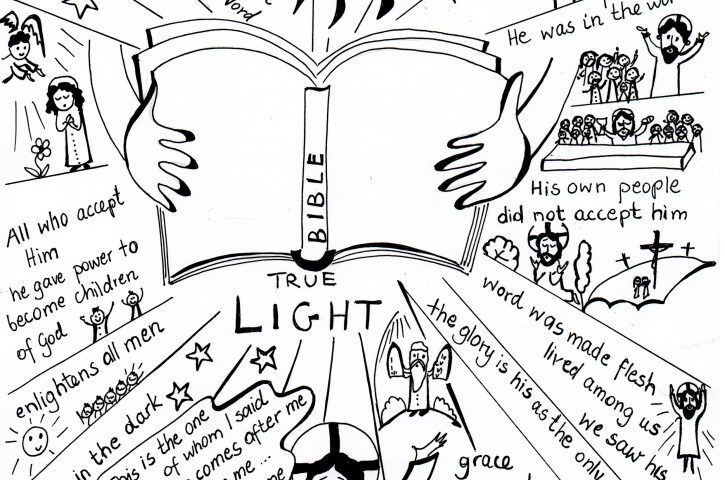 Word
He was in the wor
BIBLE
His own people
did not accept him
All who accept
Him
he gave power to
become children
of God
TRUE
LIGHT
enlightens all men
in the dark
This is the one
of whom I said
comes after me
me ...
me
word was made flesh
lived among us
we saw his
the glory is his as the only
grace